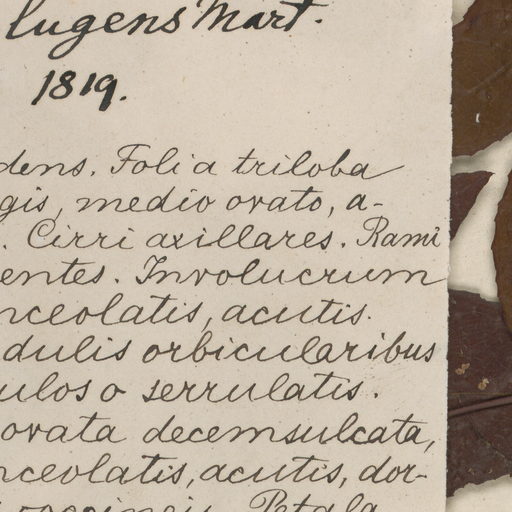 lugens Mart.
1819.
dens. Folia triloba
gis, medio ovato, a-
. Cirri axillares. Rami
entes. Involucrum
nceolatis, acutis.
dulis orbicularibus
uloso serrulatis.
ovata decemsulcata,
nceolatis, acutis, dor-
coccineis. Petala